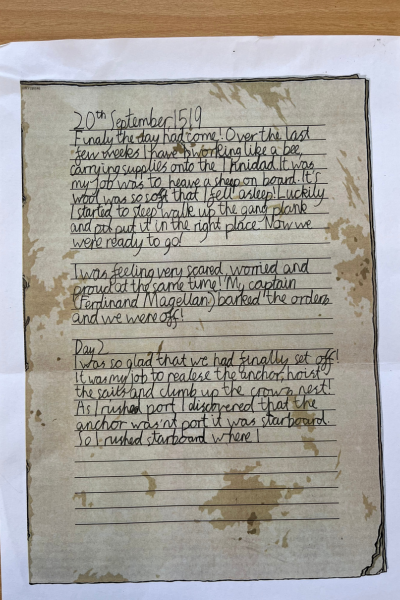 20th September 1519
Finaly the day had come! Over the last
few weeks I have working like a bee,
carrying supplies onto the Trinidad. It was
my job was to heave a sheep on board. It's
wool was so soft that I fell asleep! Luckily
I started to sleep walk up the gang plank
and put it in the right place. Now we
were ready to go!
I was feeling very scared, worried and
proud at the same time! My captain
(Ferdinand Magellan) barked the orders
and we were off!
Day 2
I was so glad that we had finally set off!
It was my job to realese the anchor, hoist
the sails and climb up the crows nest!
As I rushed port I discovered that the
anchor was'nt port it was starboard.
So I rushed starboard where I